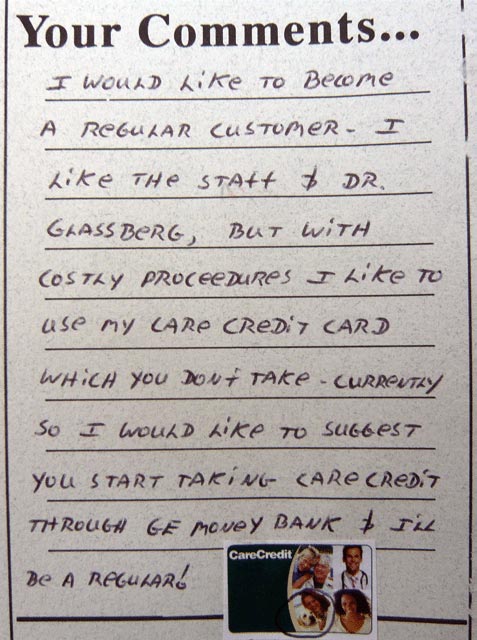 Your Comments...
I WOULD LIKE TO BECOME
A REGULAR CUSTOMER - I
LIKE THE STAFF & DR.
GLASSBERG, BUT WITH
COSTLY PROCEEDURES I LIKE TO
USE MY CARE CREDIT CARD
WHICH YOU DON'T TAKE - CURRENTLY
SO I WOULD LIKE TO SUGGEST
YOU START TAKING CARE CREDIT
THROUGH GE MONEY BANK & I'LL
BE A REGULAR!
CareCredit